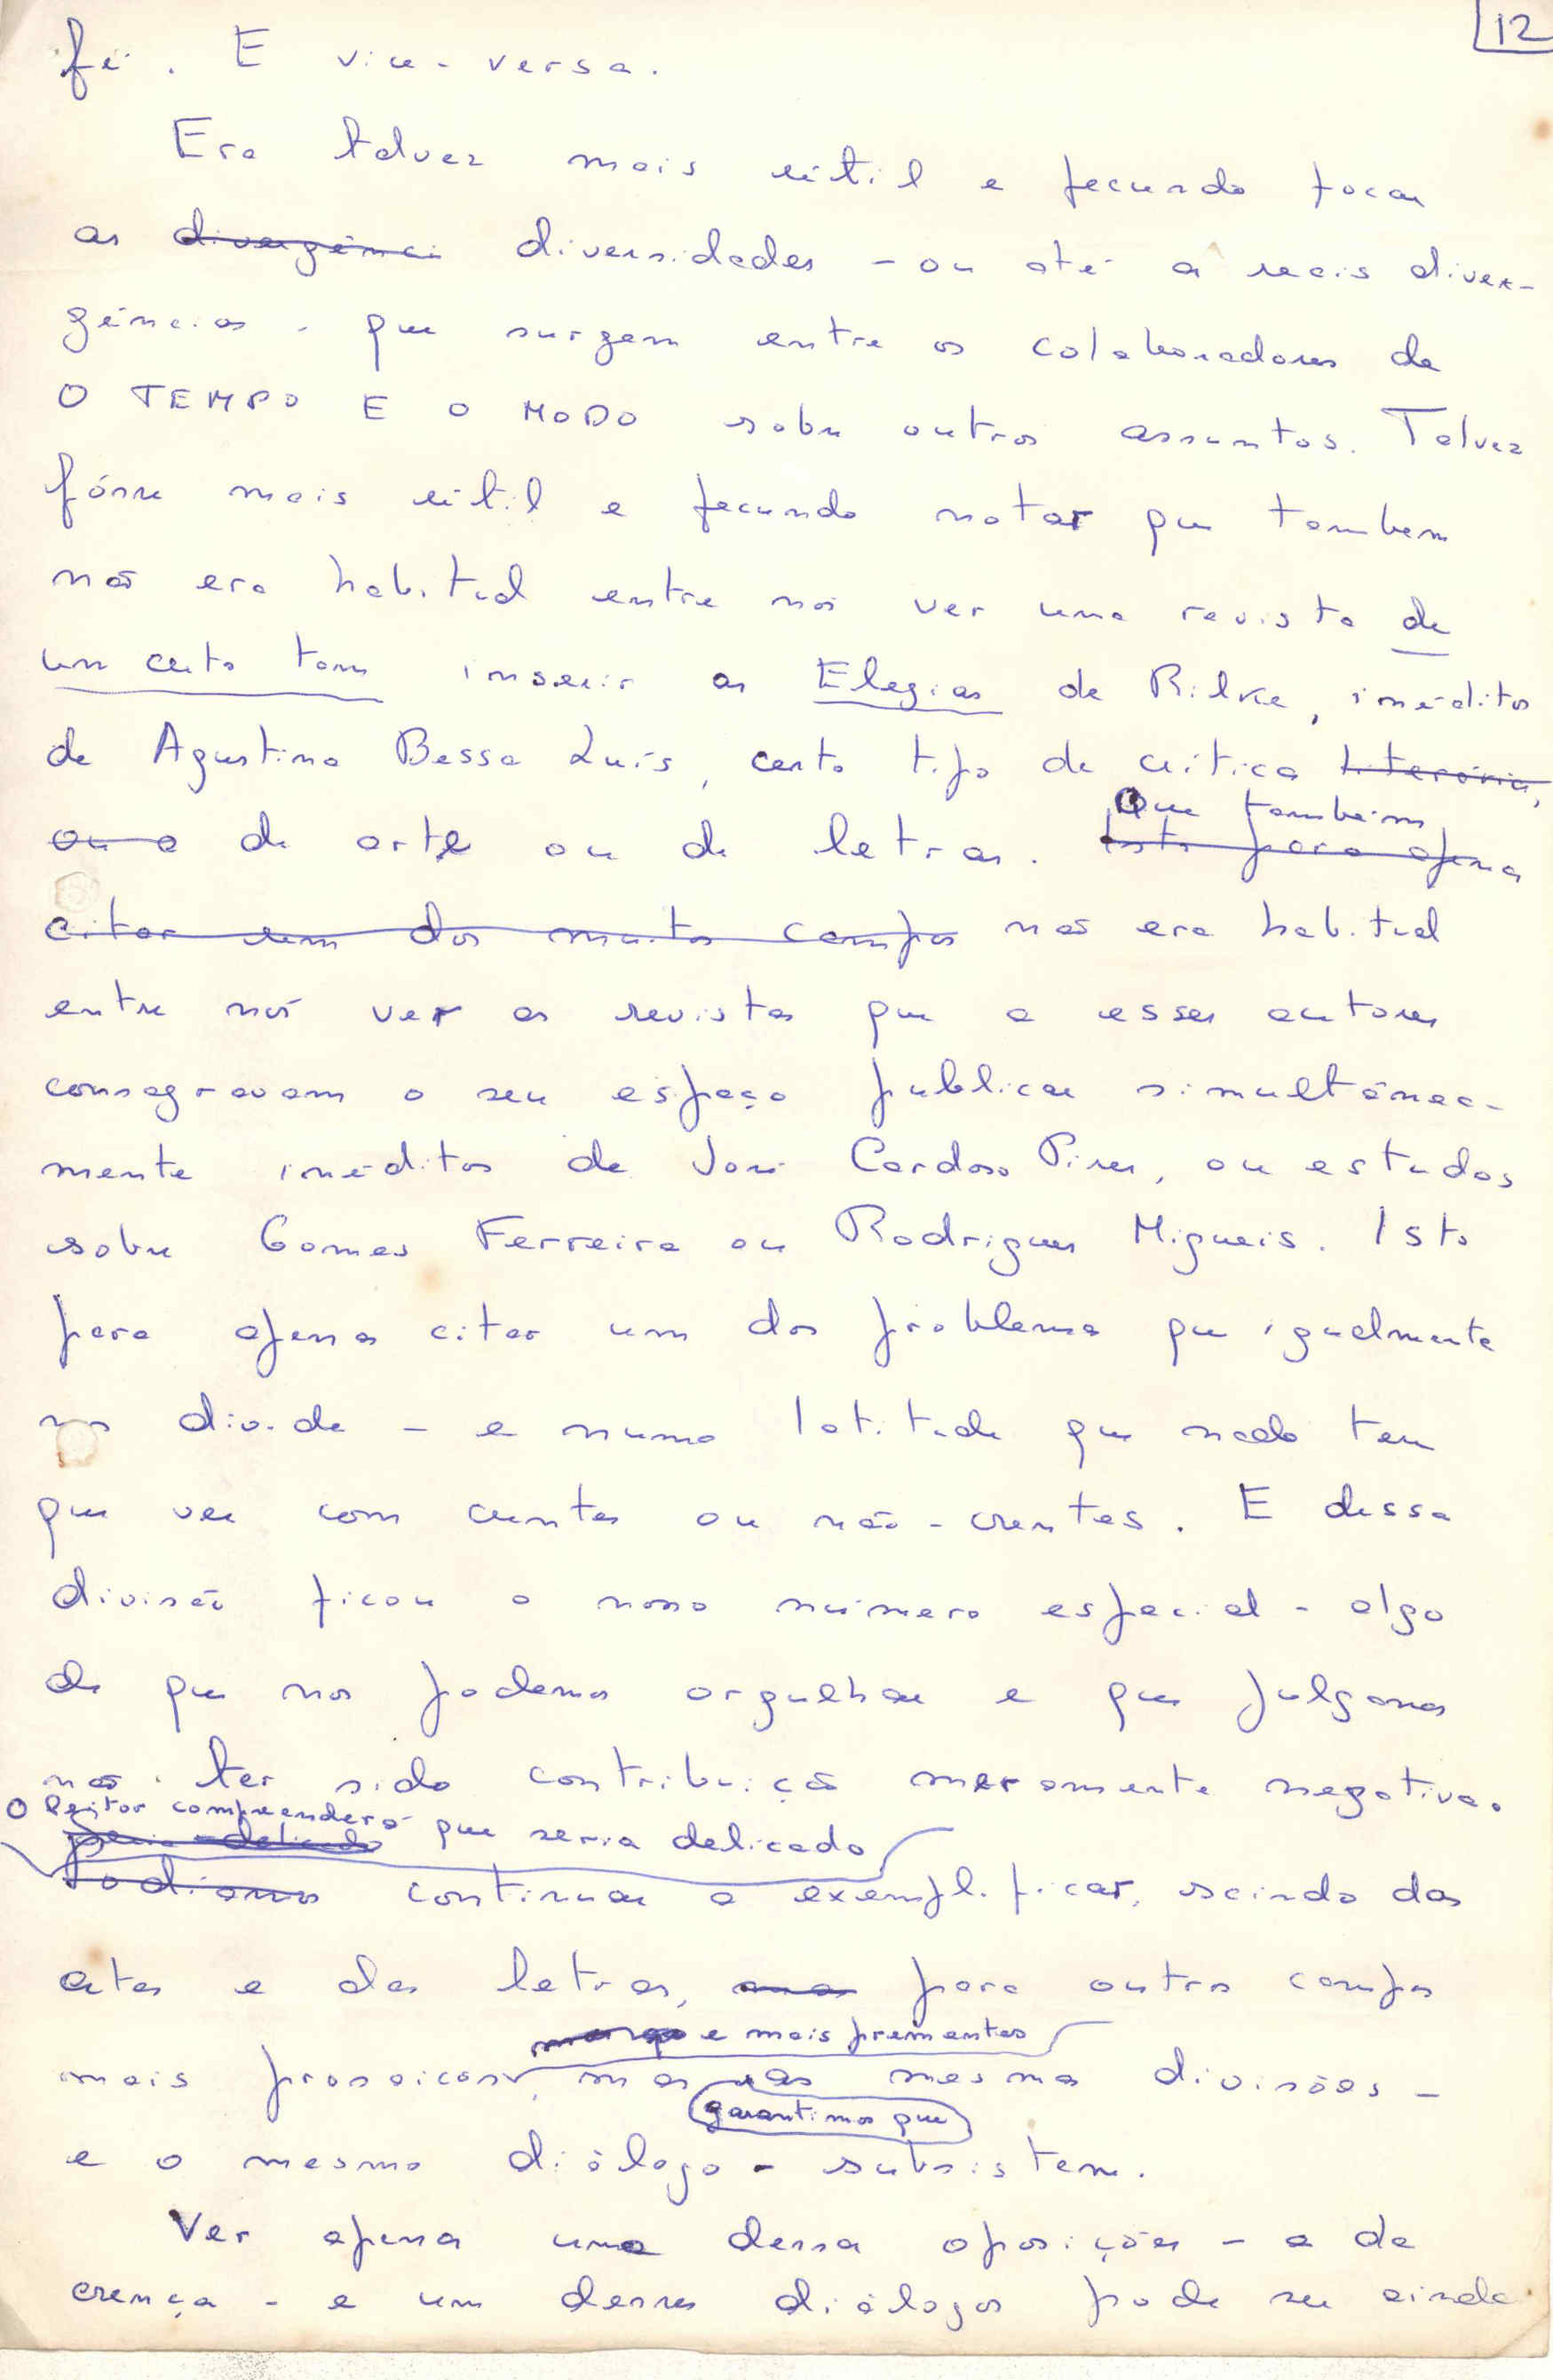 12
fé. E vice-versa.
Era talvez mais útil e fecundo focar
as divergênci diversidades - ou até as reais diver-
gências - que surgem entre os colaboradores de
O TEMPO E O MODO sobre outros assuntos. Talvez
fôsse mais útil e fecundo notar que também
não era habitual entre nós ver uma revista de
um certo tom inserir as Elegias de Rilke, inéditos
de Agustina Bessa Luís, certo tipo de crítica literária,
ou a de arte ou de letras. Isto para apenas
Que também
citar um dos muitos campos não era habitual
entre nós ver as revistas que a esses autores
consagravam o seu espaço publicar simultânea-
mente inéditos de José Cardoso Pires, ou estudos
sobre Gomes Ferreira ou Rodrigues Miguéis. Isto
para apenas citar um dos problemas que igualmente
nos divide - e numa latitude que nada tem
que ver com crentes ou não-crentes. E dessa
divisão ficou o nosso número especial - algo
de que nos podemos orgulhar e que julgamos
não ter sido contribuição meramente negativa.
O leitor compreenderá que seria delicado
seria delicado
Podíamos continuar a exemplificar, saindo das
artes e das letras, para outros campos
e mais prementes
mais prosaicos, mas as mesmas divisões -
garantimos que
e o mesmo diálogo - subsistem.
Ver apenas uma dessas oposições - a da
crença - e um desses diálogos pode ser ainda